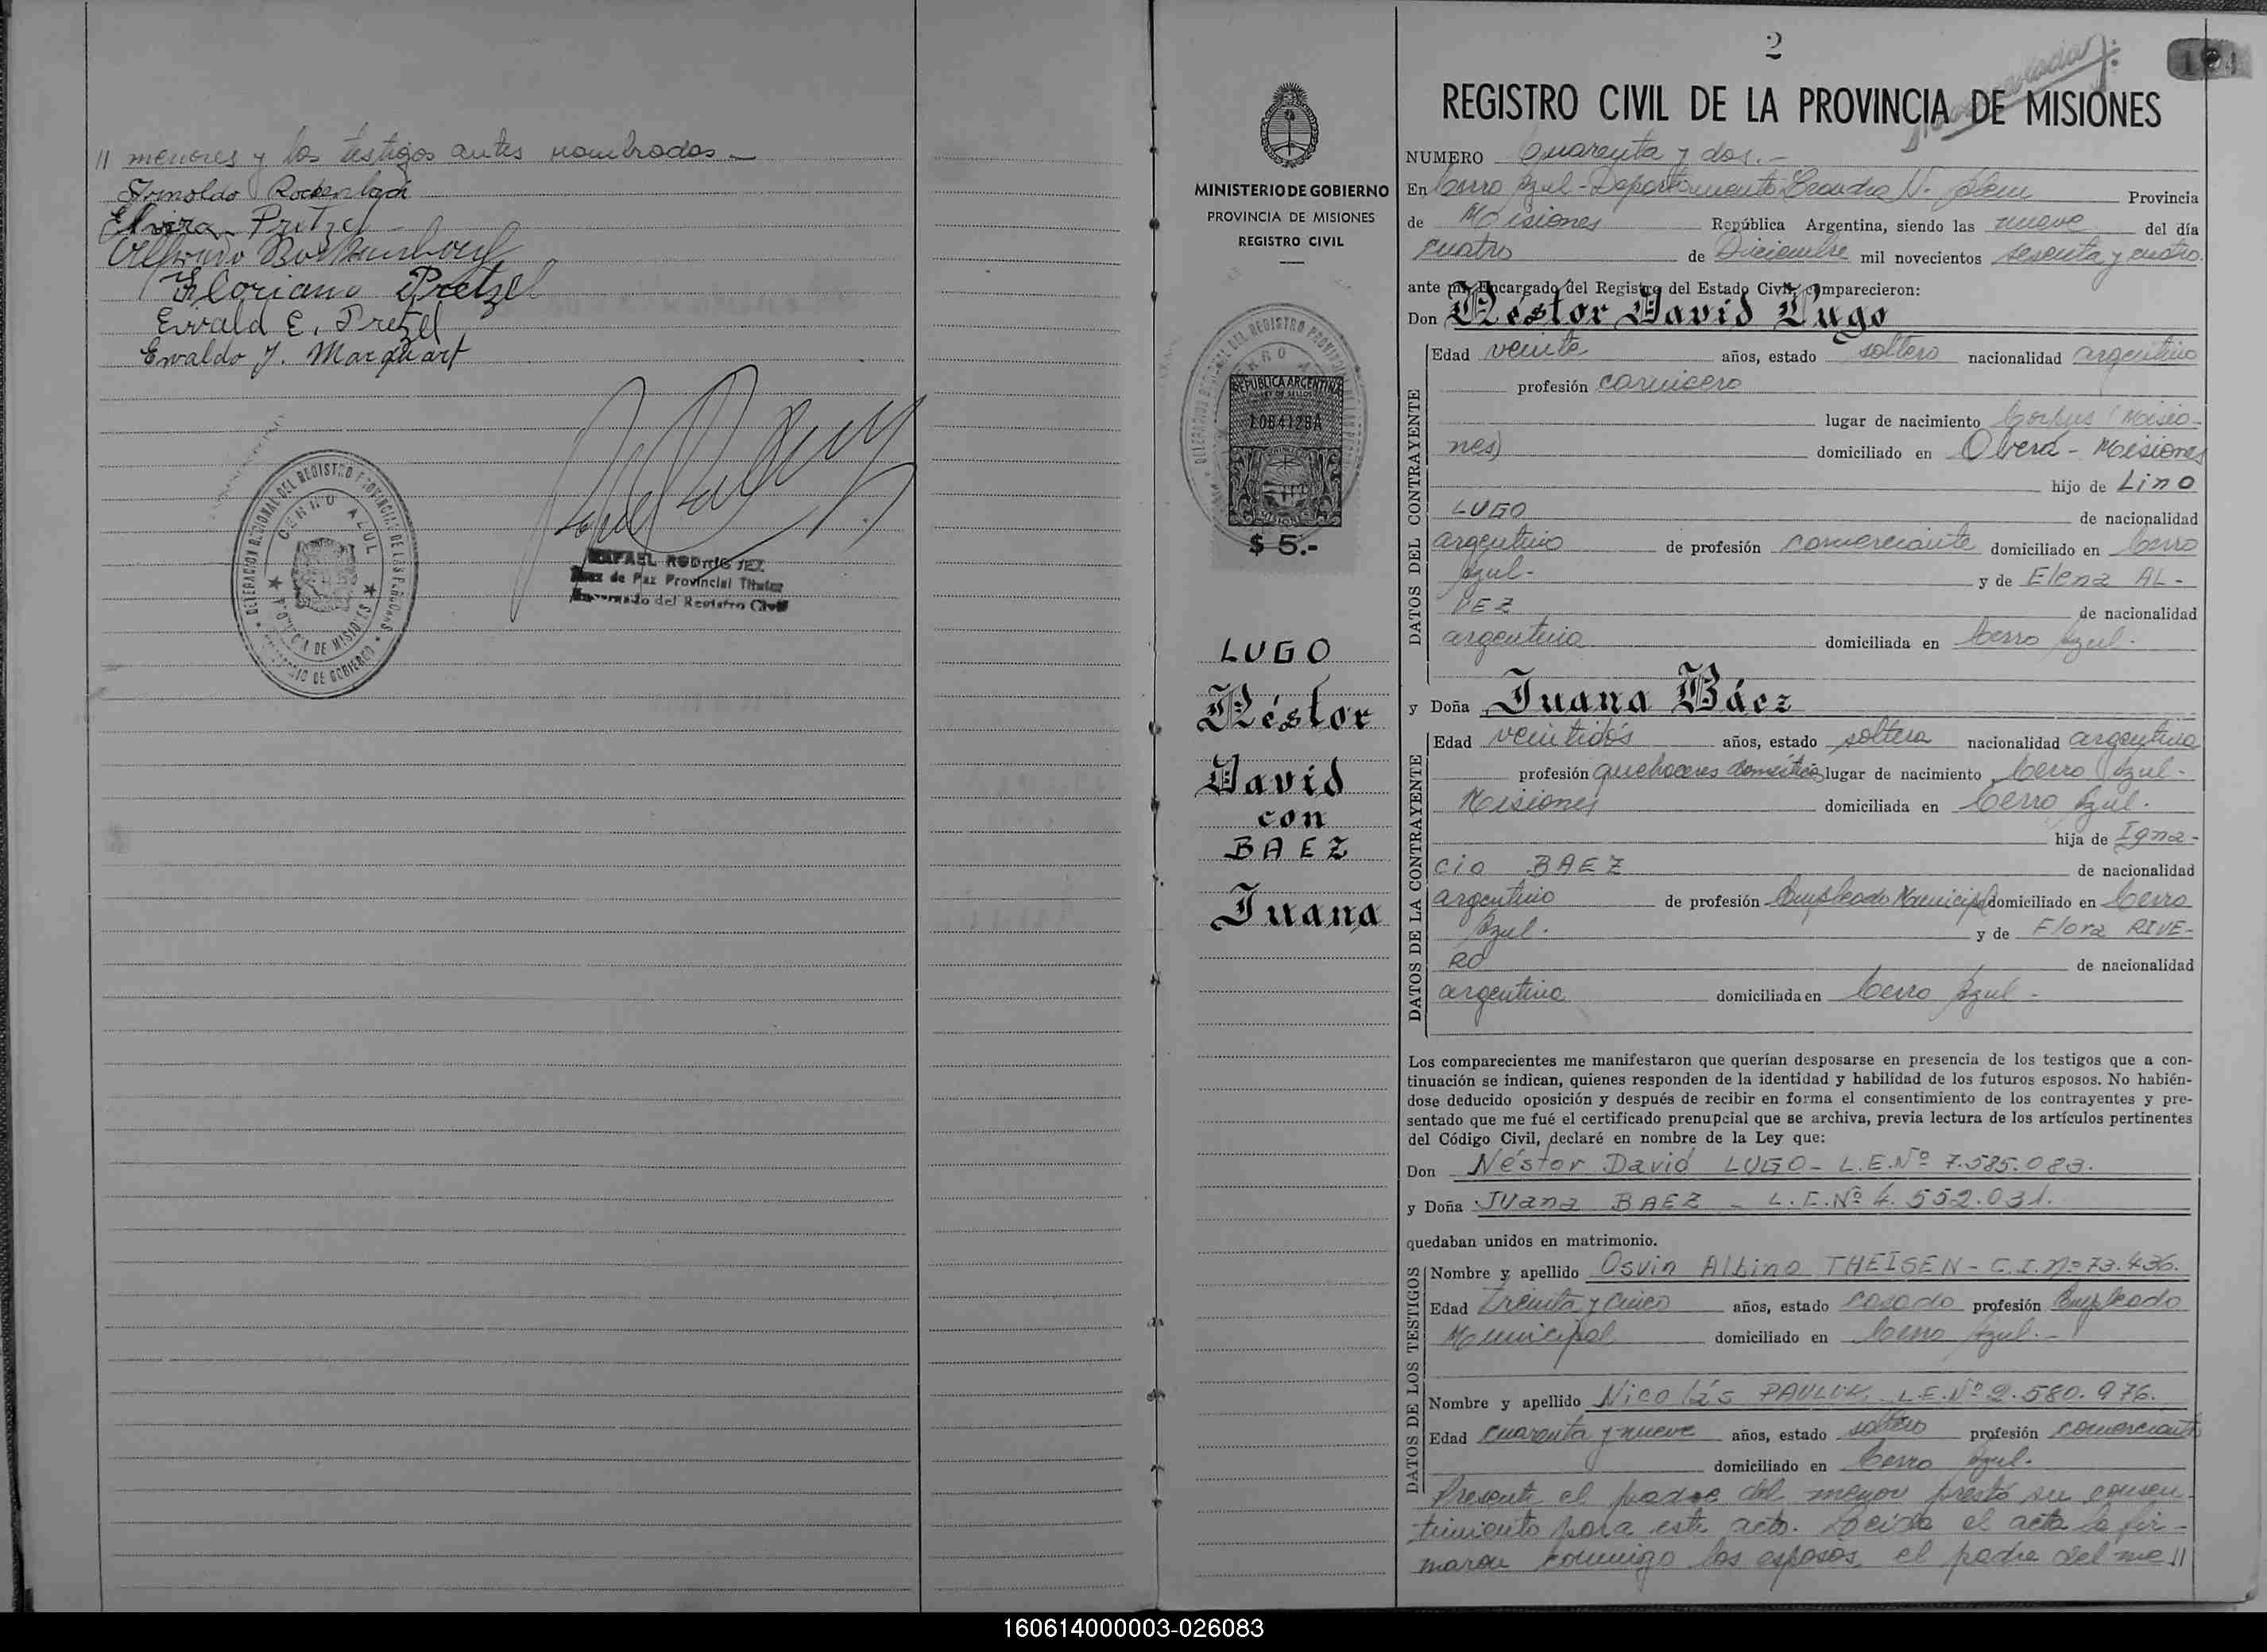 // menores y los testigos antes nombrados.-
Arnoldo Rockenbach
Elvira Pretzel
Alfredo Rockenbach
Floriano Pretzel
Ewald E. Pretzel
Ewaldo J. Marquart
DELEGACION REGIONAL DEL REGISTRO PROVINCIAL DE LAS PERSONAS
CERRO AZUL
PROVINCIA DE MISIONES
MINISTERIO DE GOBIERNO
RAFAEL RODRIGUEZ
Juez de Paz Provincial Titular
Encargado del Registro Civil
MINISTERIO DE GOBIERNO
PROVINCIA DE MISIONES
REGISTRO CIVIL
REPUBLICA ARGENTINA
LEY DE SELLOS
1084128A
MISIONES
$ 5.-
LUGO
Néstor
David
con
BAEZ
Juana
2
REGISTRO CIVIL DE LA PROVINCIA DE MISIONES
NUMERO Cuarenta y dos.-
En Cerro Azul - Departamento Leandro N. Alem Provincia
de Misiones República Argentina, siendo las nueve del día
cuatro de Diciembre mil novecientos sesenta y cuatro.
ante mí, Encargado del Registro del Estado Civil, comparecieron:
Don Néstor David Lugo
DATOS DEL CONTRAYENTE
Edad veinte años, estado soltero nacionalidad argentino
profesión carnicero
lugar de nacimiento Corpus (Misio-
nes) domiciliado en Oberá - Misiones
hijo de Lino
LUGO de nacionalidad
argentino de profesión comerciante domiciliado en Cerro
Azul- y de Elena AL-
VEZ de nacionalidad
argentina domiciliada en Cerro Azul.
y Doña Juana Báez
DATOS DE LA CONTRAYENTE
Edad veintidós años, estado soltera nacionalidad argentina
profesión quehaceres domésticos lugar de nacimiento Cerro Azul-
Misiones domiciliada en Cerro Azul.
hija de Igna-
cio BAEZ de nacionalidad
argentino de profesión Empleado Municipal domiciliado en Cerro
Azul. y de Flora RIVE-
RO de nacionalidad
argentina domiciliada en Cerro Azul -
Los comparecientes me manifestaron que querían desposarse en presencia de los testigos que a con-
tinuación se indican, quienes responden de la identidad y habilidad de los futuros esposos. No habién-
dose deducido oposición y después de recibir en forma el consentimiento de los contrayentes y pre-
sentado que me fué el certificado prenupcial que se archiva, previa lectura de los artículos pertinentes
del Código Civil, declaré en nombre de la Ley que:
Don Néstor David LUGO - L.E.Nº 7.585.083.
y Doña Juana BAEZ - L.C.Nº 4.552.031.
quedaban unidos en matrimonio.
DATOS DE LOS TESTIGOS
Nombre y apellido Osvin Albino THEISEN - C.I.nº 73.436.
Edad treinta y cinco años, estado casado profesión Empleado
Municipal domiciliado en Cerro Azul.-
Nombre y apellido Nicolás PAULUK. L.E.Nº 2.580.976.
Edad cuarenta y nueve años, estado soltero profesión comerciante
domiciliado en Cerro Azul.
Presente el padre del menor prestó su consen-
timiento para este acto. Leída el acta la fir-
maron conmigo los esposos, el padre del me//
160614000003-026083